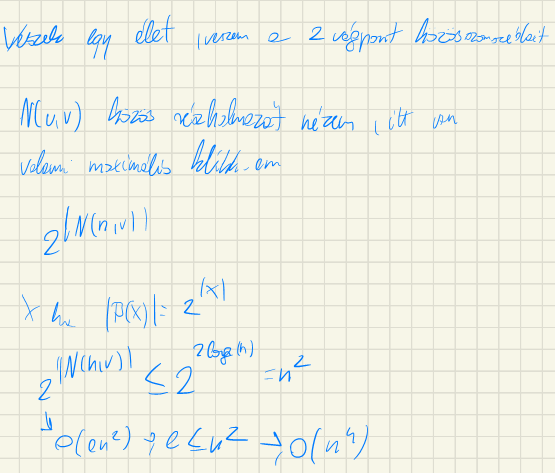 Veszek egy élet, veszem a 2 végpont közös szomszédait
N(u,v) közös részhalmazát nézem, itt van
valami maximális klikk-em
2^|N(u,v)|
X hz |P(X)| = 2^|X|
2^|N(u,v)| ≤ 2^{2log_2(n)} = n^2
↓
O(en^2) ; e ≤ n^2 → O(n^4)